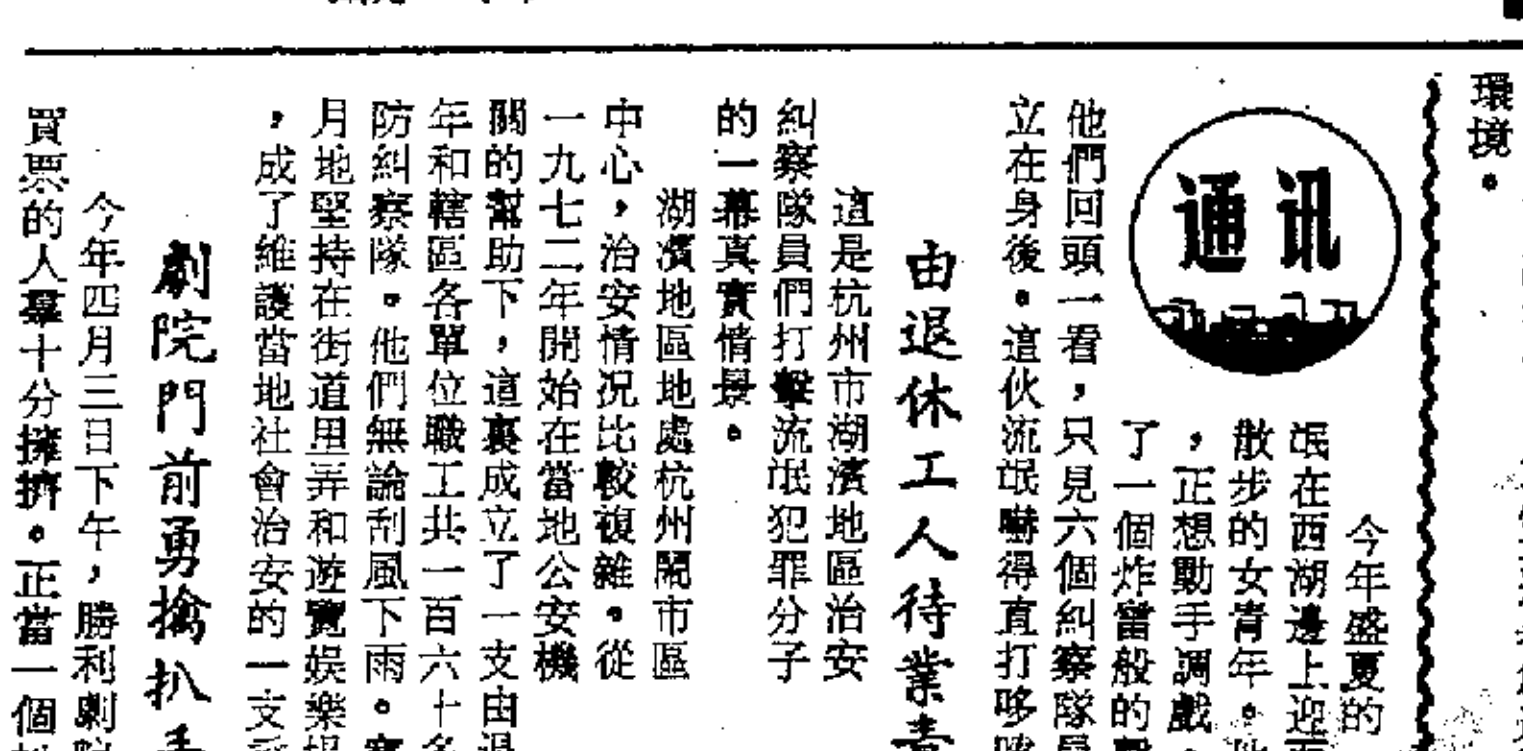 環境。
通讯
今年盛夏的
氓在西湖邊上迎
散步的女青年。
，正想動手調戲，
了一個炸雷般的
他們回頭一看，只見六個糾察隊
立在身後。這伙流氓嚇得直打哆
由退休工人待業
這是杭州市湖濱地區治安
糾察隊員們打擊流氓犯罪分子
的一幕真實情景。
湖濱地區地處杭州鬧市區
中心，治安情况比較複雜。從
一九七二年開始在當地公安機
關的幫助下，這裏成立了一支由退
年和轄區各單位職工共一百六十名
防糾察隊。他們無論刮風下雨。寒
月地堅持在街道里弄和遊覽娛樂
，成了維護當地社會治安的一支
劇院門前勇擒扒手
今年四月三日下午，勝利劇院
買票的人羣十分擁擠。正當一個